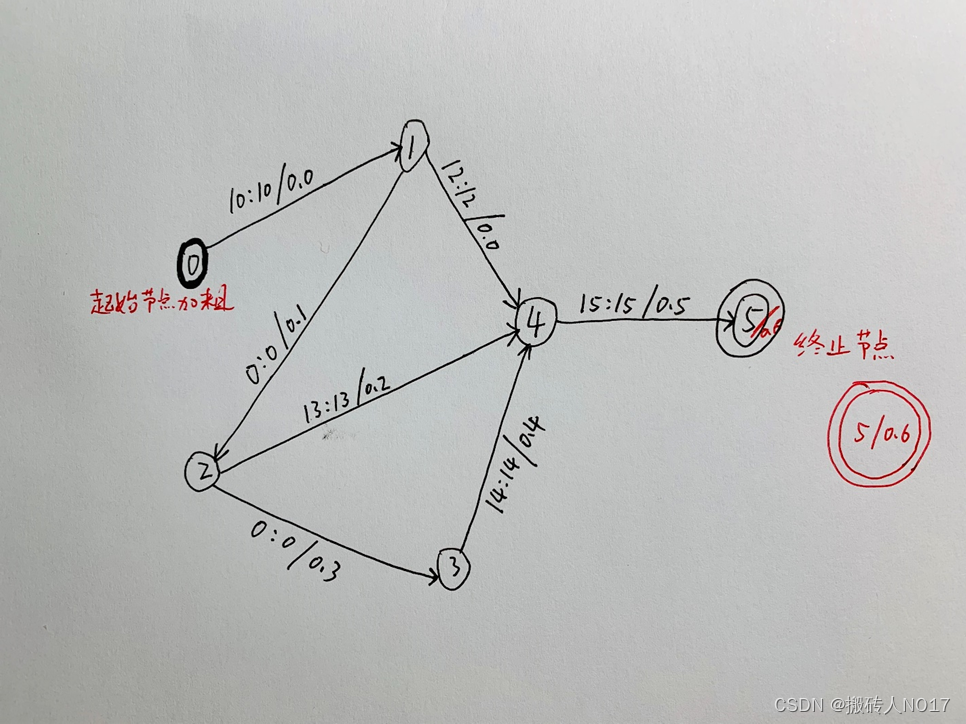 1
10:10/0.0
12:12/0.0
0
起始节点加粗
4
15:15/0.5
5/0.6
终止节点
0:0/0.1
13:13/0.2
5/0.6
2
14:14/0.4
0:0/0.3
3
CSDN @搬砖人NO17